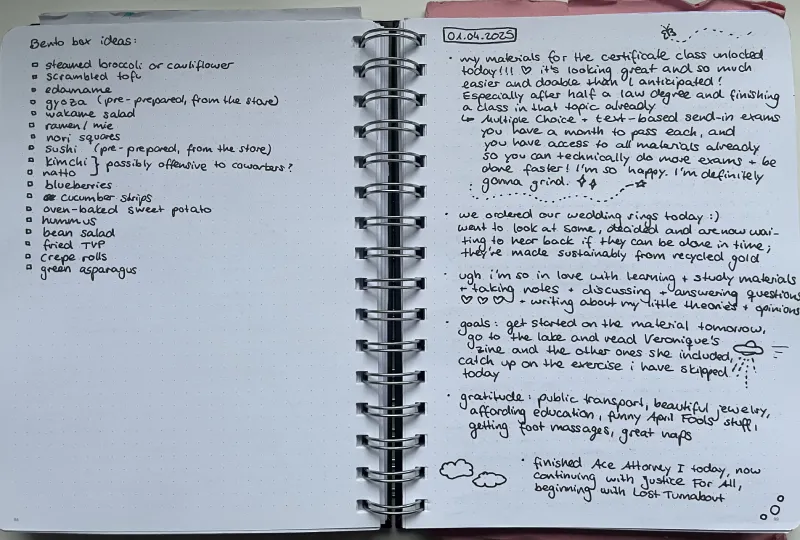 Bento box ideas:
steamed broccoli or cauliflower
scrambled tofu
edamame
gyoza (pre-prepared, from the store)
wakame salad
ramen/mie
nori squares
sushi (pre-prepared, from the store)
kimchi } possibly offensive to coworkers?
natto
blueberries
cucumber strips
oven-baked sweet potato
hummus
bean salad
fried TVP
crepe rolls
green asparagus
01.04.2025
• my materials for the certificate class unlocked
today!!! ♡ it's looking great and so much
easier and doable than I anticipated!
Especially after half a law degree and finishing
a class in that topic already
↳ Multiple Choice + text-based send-in exams
you have a month to pass each, and
you have access to all materials already
so you can technically do more exams + be
done faster! I'm so happy. I'm definitely
gonna grind.
• we ordered our wedding rings today :)
went to look at some, decided and are now wai-
ting to hear back if they can be done in time;
they're made sustainably from recycled gold
• ugh i'm so in love with learning + study materials
+ taking notes + discussing + answering questions
♡ ♡ ♡ + writing about my little theories + opinions
• goals: get started on the material tomorrow,
go to the lake and read Veronique's
zine and the other ones she included,
catch up on the exercise i have skipped
today
• gratitude: public transport, beautiful jewelry,
affording education, funny April Fools' stuff,
getting foot massages, great naps
• finished Ace Attorney I today, now
continuing with Justice For All,
beginning with Lost Turnabout